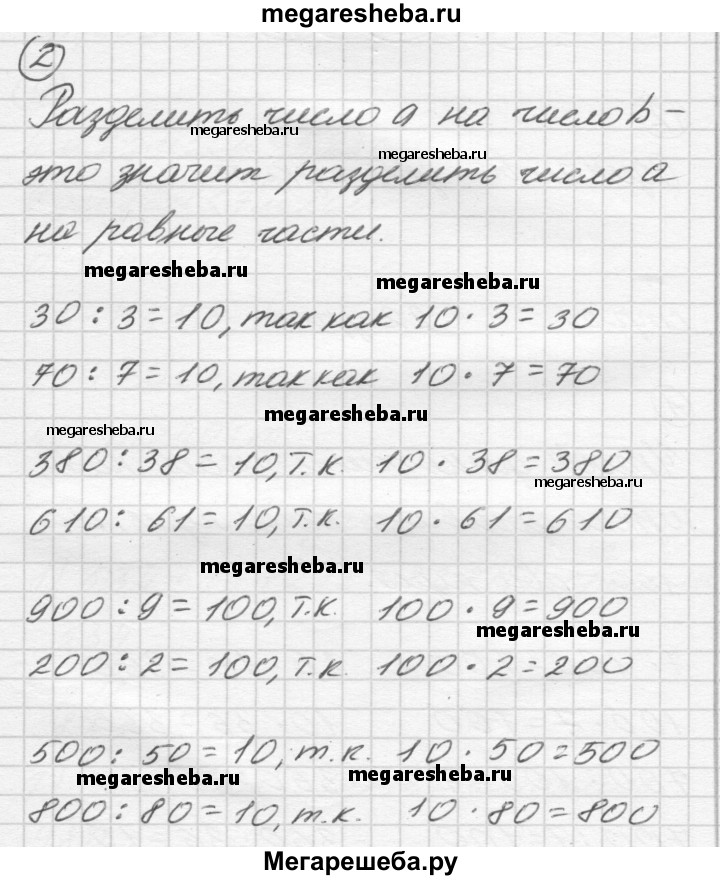 megaresheba.ru
2
Разделить число a на число b –
megaresheba.ru
megaresheba.ru
это значит разделить число a
на равные части.
megaresheba.ru
megaresheba.ru
30 : 3 = 10, так как 10 · 3 = 30
70 : 7 = 10, так как 10 · 7 = 70
megaresheba.ru
megaresheba.ru
380 : 38 = 10, т.к. 10 · 38 = 380
megaresheba.ru
610 : 61 = 10, т.к. 10 · 61 = 610
megaresheba.ru
900 : 9 = 100, т.к. 100 · 9 = 900
megaresheba.ru
200 : 2 = 100, т.к. 100 · 2 = 200
500 : 50 = 10, т.к. 10 · 50 = 500
megaresheba.ru
megaresheba.ru
800 : 80 = 10, т.к. 10 · 80 = 800
Мегарешеба.ру